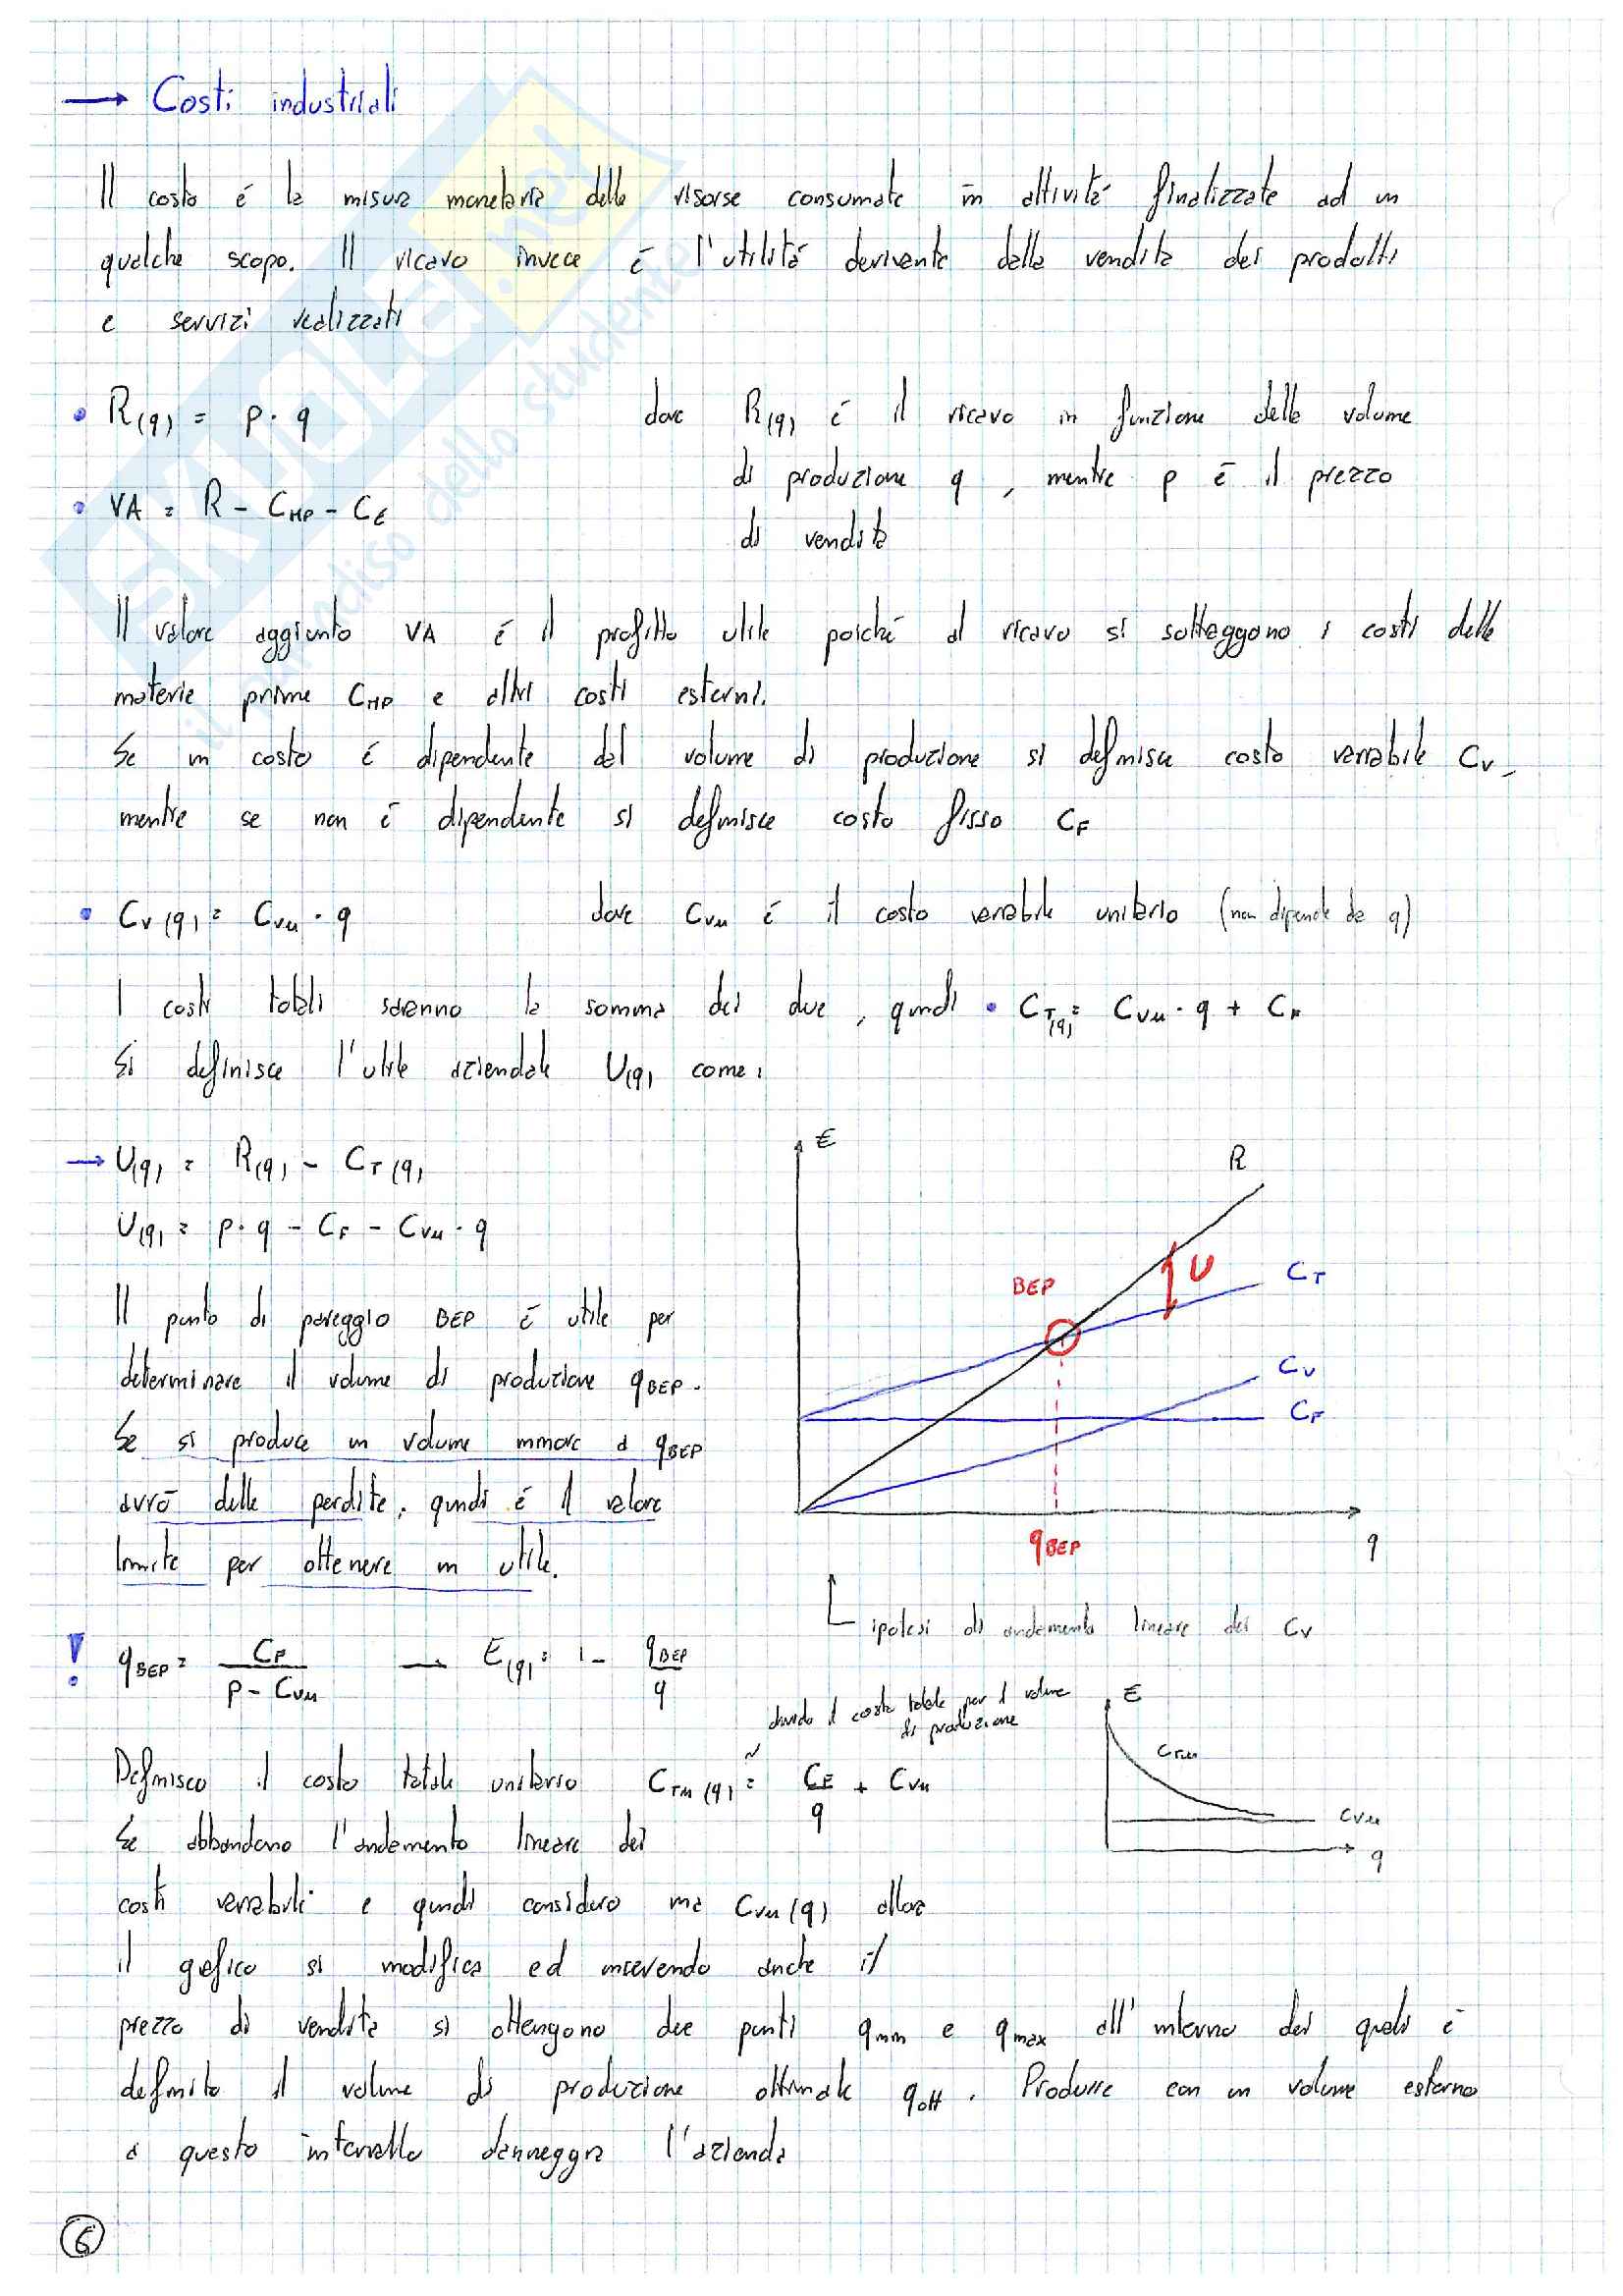 → Costi industriali
Il costo é la misura monetaria delle risorse consumate in attivitá finalizzate ad un
qualche scopo. Il ricavo invece é l'utilitá derivante dalla vendita dei prodotti
e servizi realizzati
• R(q) = p · q dove R(q) é il ricavo in funzione della volume
di produzione q , mentre p é il prezzo
• VA = R - CMP - CE
di vendita
Il valore aggiunto VA é il profitto utile poiché al ricavo si sottraggono i costi delle
materie prime CMP e altri costi esterni.
Se un costo é dipendente dal volume di produzione si definisce costo variabile CV,
mentre se non é dipendente si definisce costo fisso CF
• CV(q) = CVu · q dove CVu é il costo variabile unitario (non dipende da q)
I costi totali saranno la somma dei due , quindi • CT(q) = CVu · q + CF
Si definisce l'utile aziendale U(q) come:
→ U(q) = R(q) - CT(q)
U(q) = p · q - CF - CVu · q
Il punto di pareggio BEP é utile per
determinare il volume di produzione qBEP.
Se si produce un volume minore a qBEP
avró delle perdite, quindi é il valore
limite per ottenere un utile.
€
R
U
CT
BEP
CV
CF
qBEP
q
ipotesi di andamento lineare dei CV
! qBEP = CF / (p - CVu) → E(q) = 1 - qBEP / q
divido il costo totale per il volume
di produzione
Definisco il costo totale unitario CTu(q) = CF / q + CVu
€
CTu
CVu
q
Se abbandono l'andamento lineare dei
costi variabili e quindi considero una CVu(q) allora
il grafico si modifica ed inserendo anche il
prezzo di vendita si ottengono due punti qmin e qmax all'interno dei quali é
definito il volume di produzione ottimale qott . Produrre con un volume esterno
a questo intervallo danneggia l'azienda
6
SKUOLA.net
il paradiso dello studente